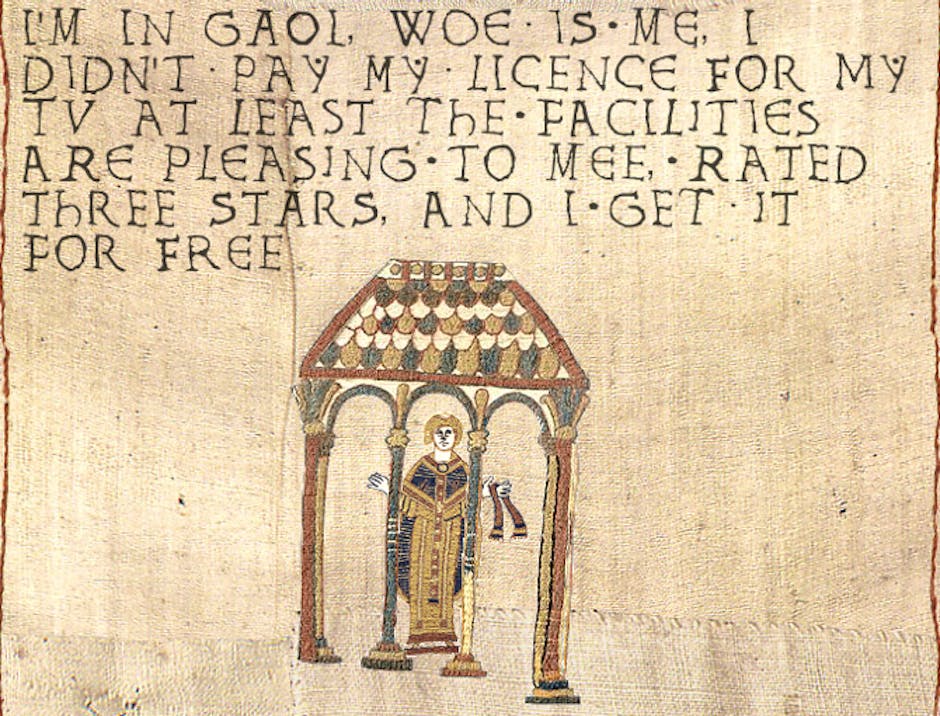 I'M IN GAOL, WOE · IS · ME, I
DIDN'T · PAY MY · LICENCE FOR MY
TV AT LEAST THE · FACILITIES
ARE PLEASING · TO MEE, · RATED
THREE STARS, AND I · GET · IT
FOR FREE